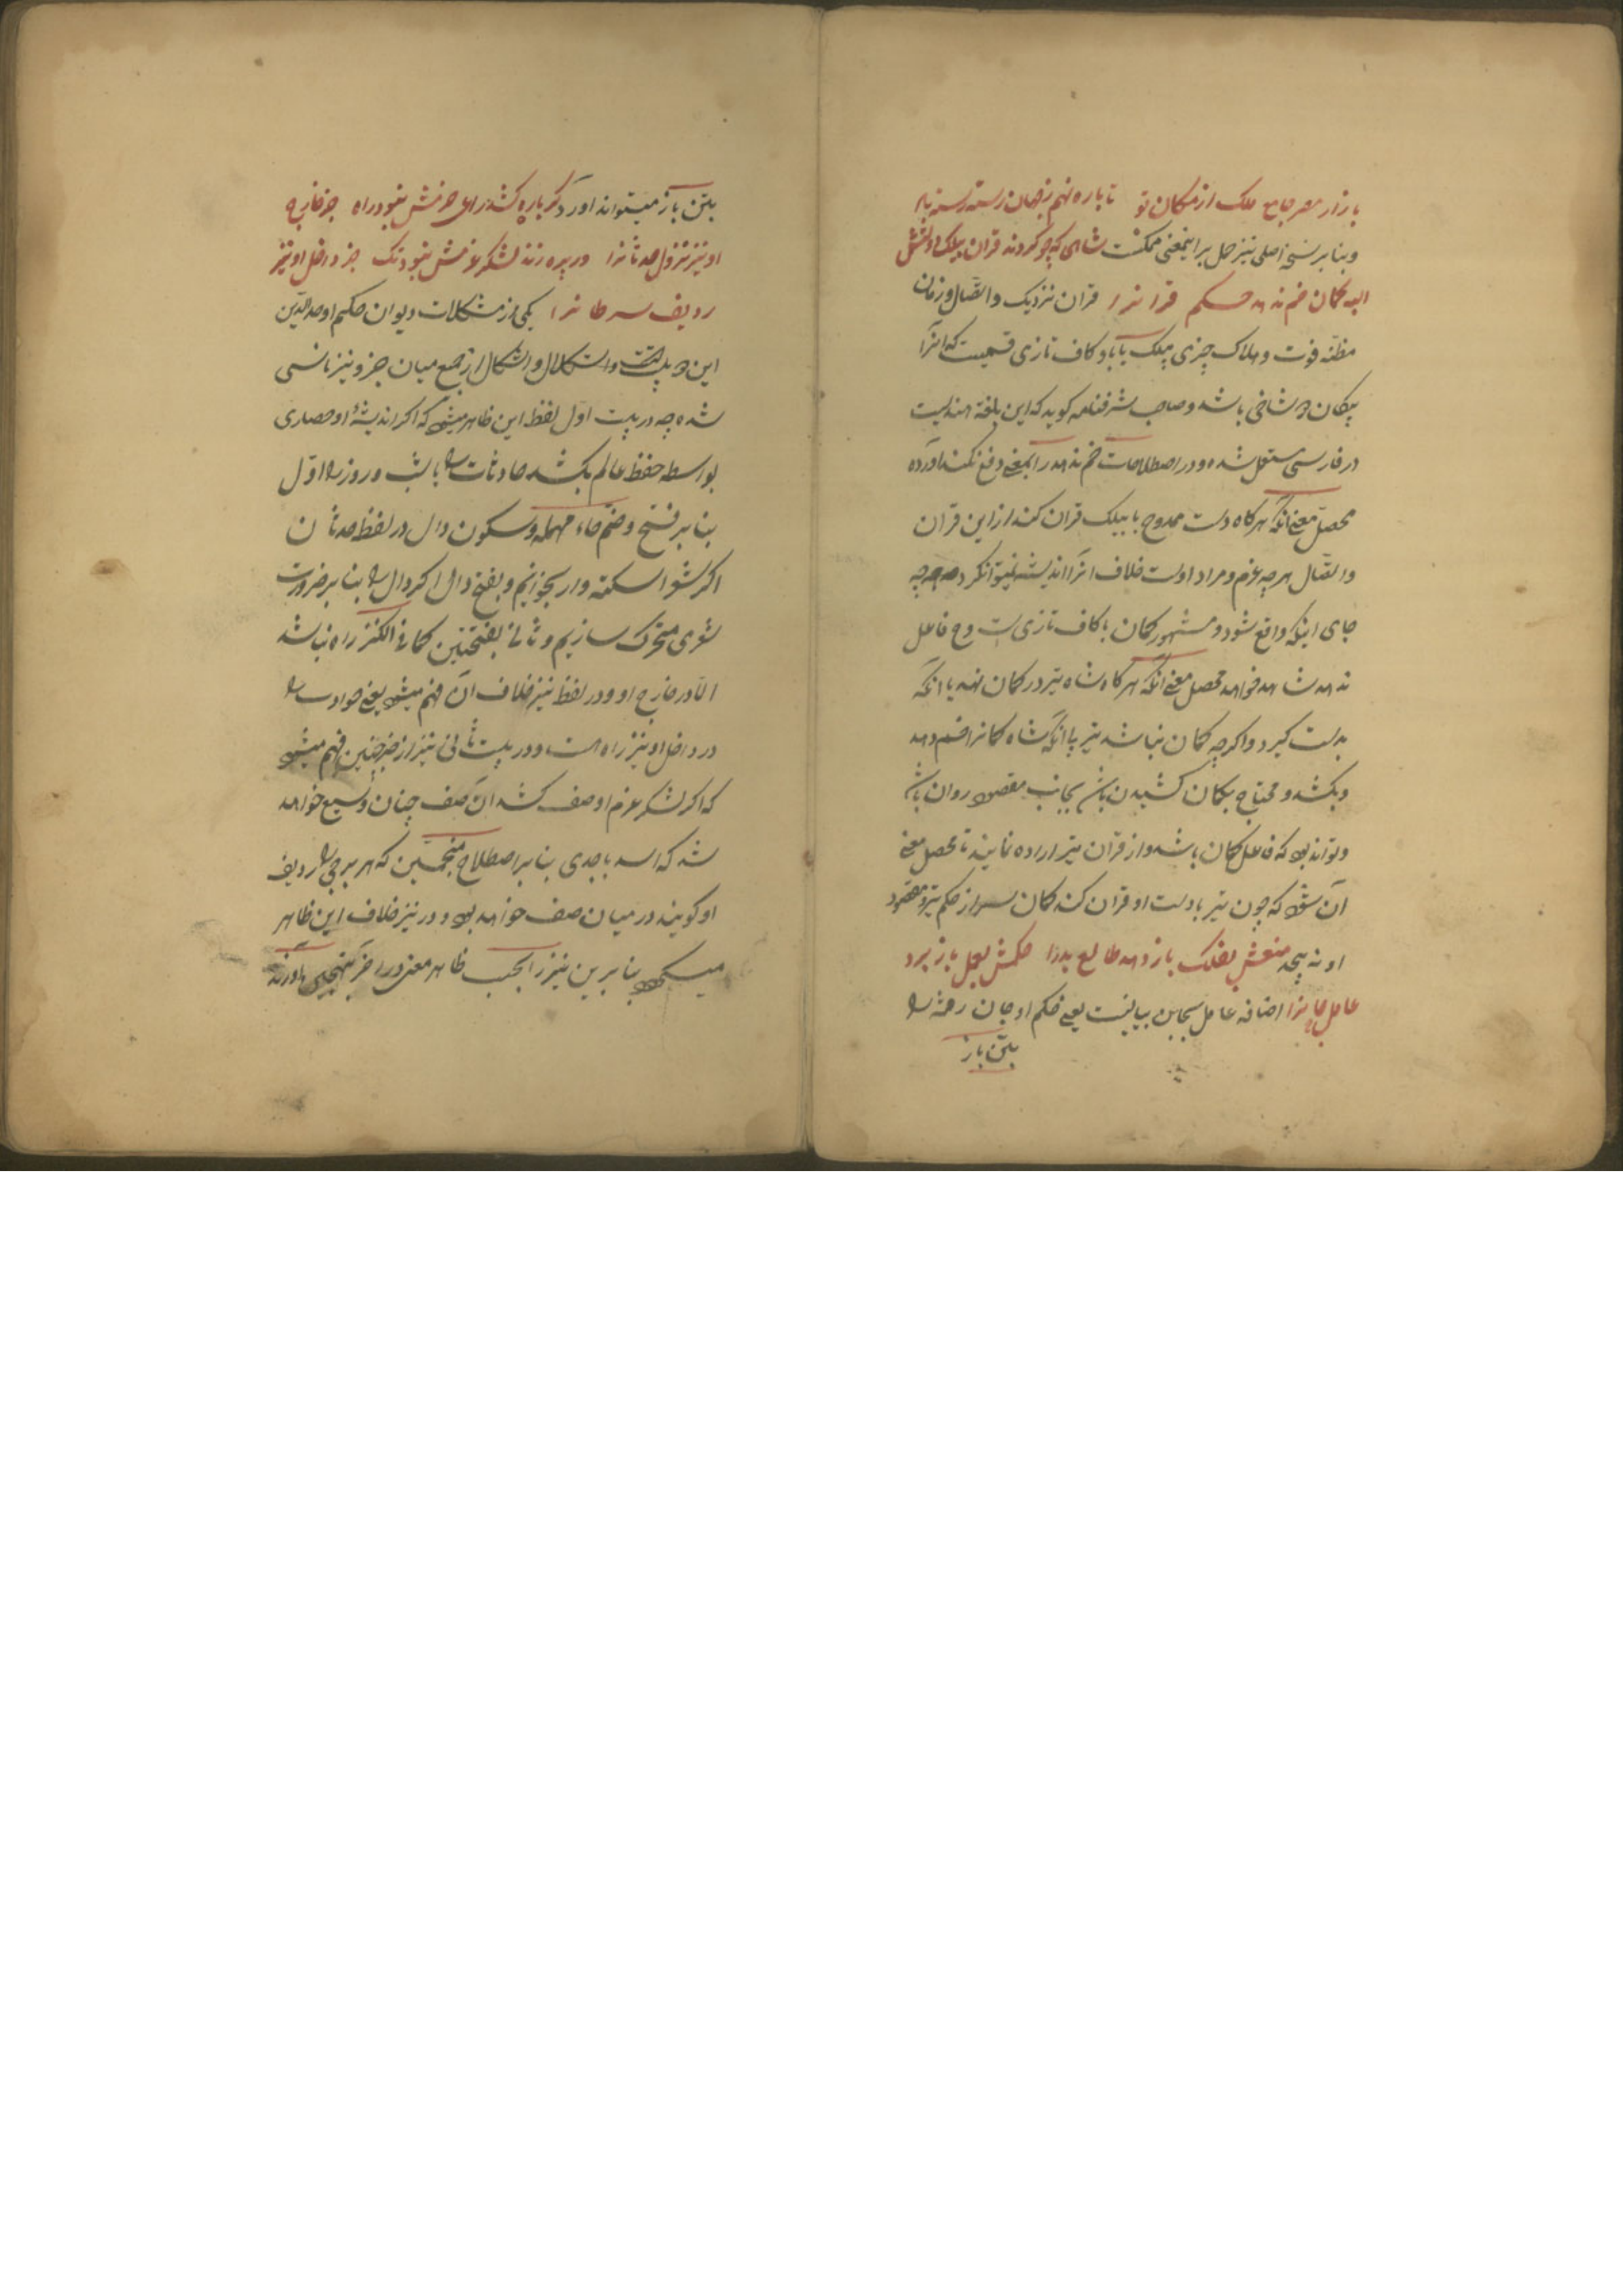 بازار مصر جامع ملک از مکان تو تا باره نهم ز جهان رسته رسته باد
و بنا بر نسخه اصلی نیز حمل بر اینمعنی ممکنست شاهی که چو کردند قران بیلک و دستش
البه کمان خم ندهد حکم قرانرا قران نزدیک و اتصال و زمان
مظنّه فوت و هلاک چیزی بیلک با با و کاف تازی قسمیست که انرا
پیکان دو شاخی باشد و صاحب شرفنامه کوید که این بلغة هندیست
در فارسی مستعمل شده و در اصطلاحات خم ندهد را بمعنی دفع نکند اورده
محصل معنی انکه هرکاه دست ممدوح با بیلک قران کند از این قران
و اتصال هرچه عزم و مراد اوست خلاف انرا اندیشه نمیتوانکرد چه
جای اینکه واقع شود و مشهور کمان با کاف تازی است و ح فاعل
ندهد شاهد خواهد محصل معنی انکه هرکاه شاه تیر در کمان نهد یا انکه
بدست کیرد و اکرچه کمان نباشد تیر با انکه شاه کمانرا خم دهد
و بکشد و محتاج بکمان کشیدن باشد بجانب مقصود روان باشد
و تواند بود که فاعل کمان باشد و از قران تیر اراده نمایند تا محصل معنی
آن شود که چون تیر با دست او قران کند کمان سر از حکم تیر و مقصود
او نه پیچد منعش بفلک باز دهد طالع بد را حکمش بعمل باز برد
عامل جانرا اضافه عامل بجان بیانیست یعنی حکم او جان رفته را
بتن باز
بتن باز میتواند اورد کر باره کشد رای حزمش نبود راه جز خارج
او نیز نزول حدثانرا ور پره زند لشکر عزمش نبود تک جز داخل او نیز
ردیف سرطانرا یکی از مشکلات دیوان حکیم اوحدالدین
این دو بیت است و اشکال از جمع میان جز و نیز ناشی
شده چه در بیت اول لفظ این ظاهر میشود که اکر اندیشهٔ او حصاری
بواسطه حفظ عالم بکشد حادثات را با شب و روز را اوّل
بنا بر فتح و ضم حاء مهمله و سکون دال در لفظ حدثان
اکر شعر را سکته وار بخوانیم و بفتح دال اکر دال را بنا بر ضرورت
شعری متحرک سازیم و ثانی بفتحتین کما فی الکنز راه نباشد
الا در خارج او و در لفظ نیز خلاف آن فهم میشود یعنی حوادث را
در داخل او نیز راه است و در بیت ثانی نیز از جز چنین فهم میشود
که اکر لشکر عزم او صف کشد آن صف چنان وسیع خواهد
شد که اسد با جدی بنا بر اصطلاح منجمین که هر برجی را ردیف
او کویند در میان صف خواهد بود و در نیز خلاف این ظاهر
میکردد بنا برین نیز را بحسب ظاهر معنی در اخر